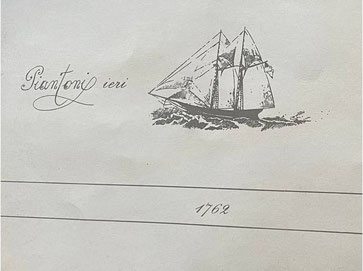 Piantoni ieri
1762